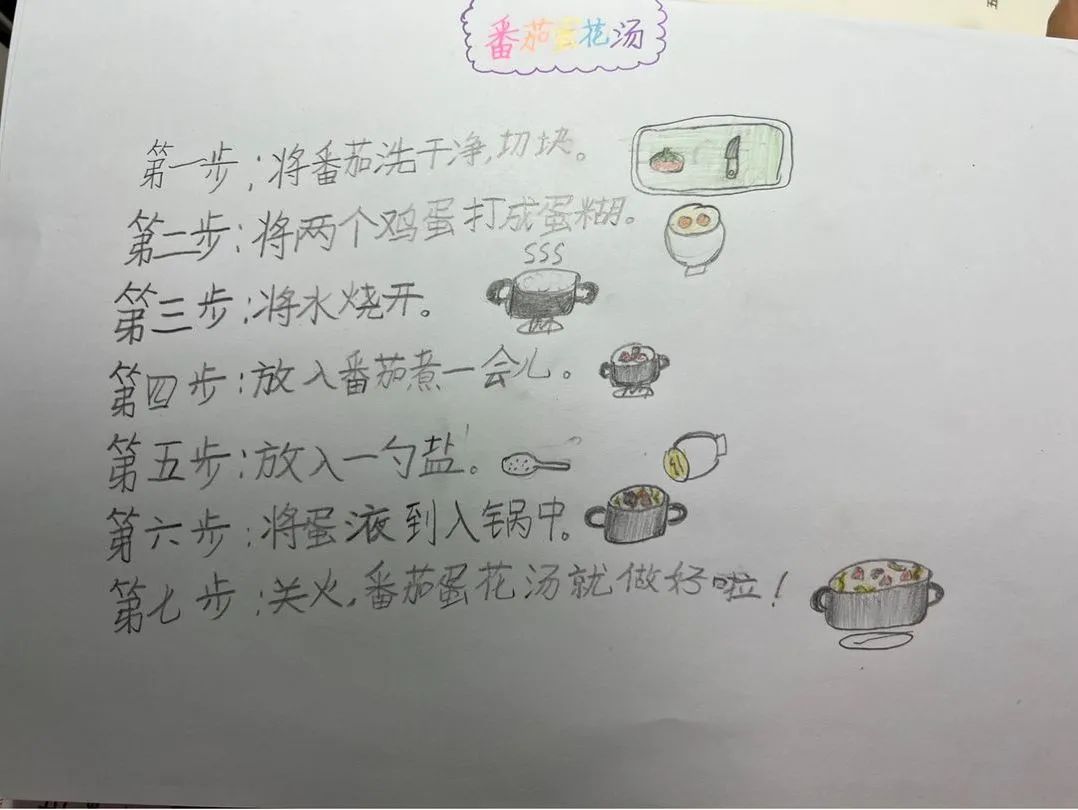 番茄蛋花汤
第一步：将番茄洗干净，切块。
第二步：将两个鸡蛋打成蛋糊。
SSS
第三步：将水烧开。
第四步：放入番茄煮一会儿。
第五步：放入一勺盐。
第六步：将蛋液到入锅中。
第七步：关火，番茄蛋花汤就做好啦！